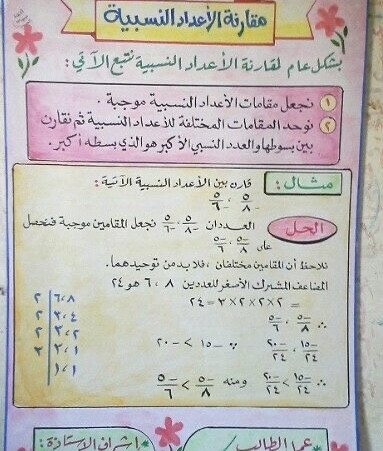 مقارنة الأعداد النسبية
بشكل عام لمقارنة الأعداد النسبية نتبع الآتي :
١ نجعل مقامات الأعداد النسبية موجبة .
٢ نوحد المقامات المختلفة للأعداد النسبية ثم نقارن
بين بسوطها والعدد النسبي الأكبر هو الذي بسطه أكبر .
مثال : قارن بين الأعداد النسبية الآتية :
٥/-٨ ، ٥/-٦
الحل العددان ٥/-٨ ، ٥/-٦ نجعل المقامين موجبة فنحصل
على -٥/٨ ، -٥/٦
نلاحظ أن المقامين مختلفان ، فلا بد من توحيدهما .
المضاعف المشترك الأصغر للعددين ٨ ، ٦ هو ٢٤
= ٢×٢×٢×٣ = ٢٤
٢ | ٦،٨
٢ | ٣،٤
٢ | ٣،٢
٣ | ٣،١
١،١
∴ -٥/٨ ، -٥/٦
-١٥/٢٤ ، -٢٠/٢٤ ∵ -١٥ > -٢٠
∴ -١٥/٢٤ > -٢٠/٢٤ ومنه ٥/-٨ > ٥/-٦
عمل الطالب /
اشراف الاستاذة :